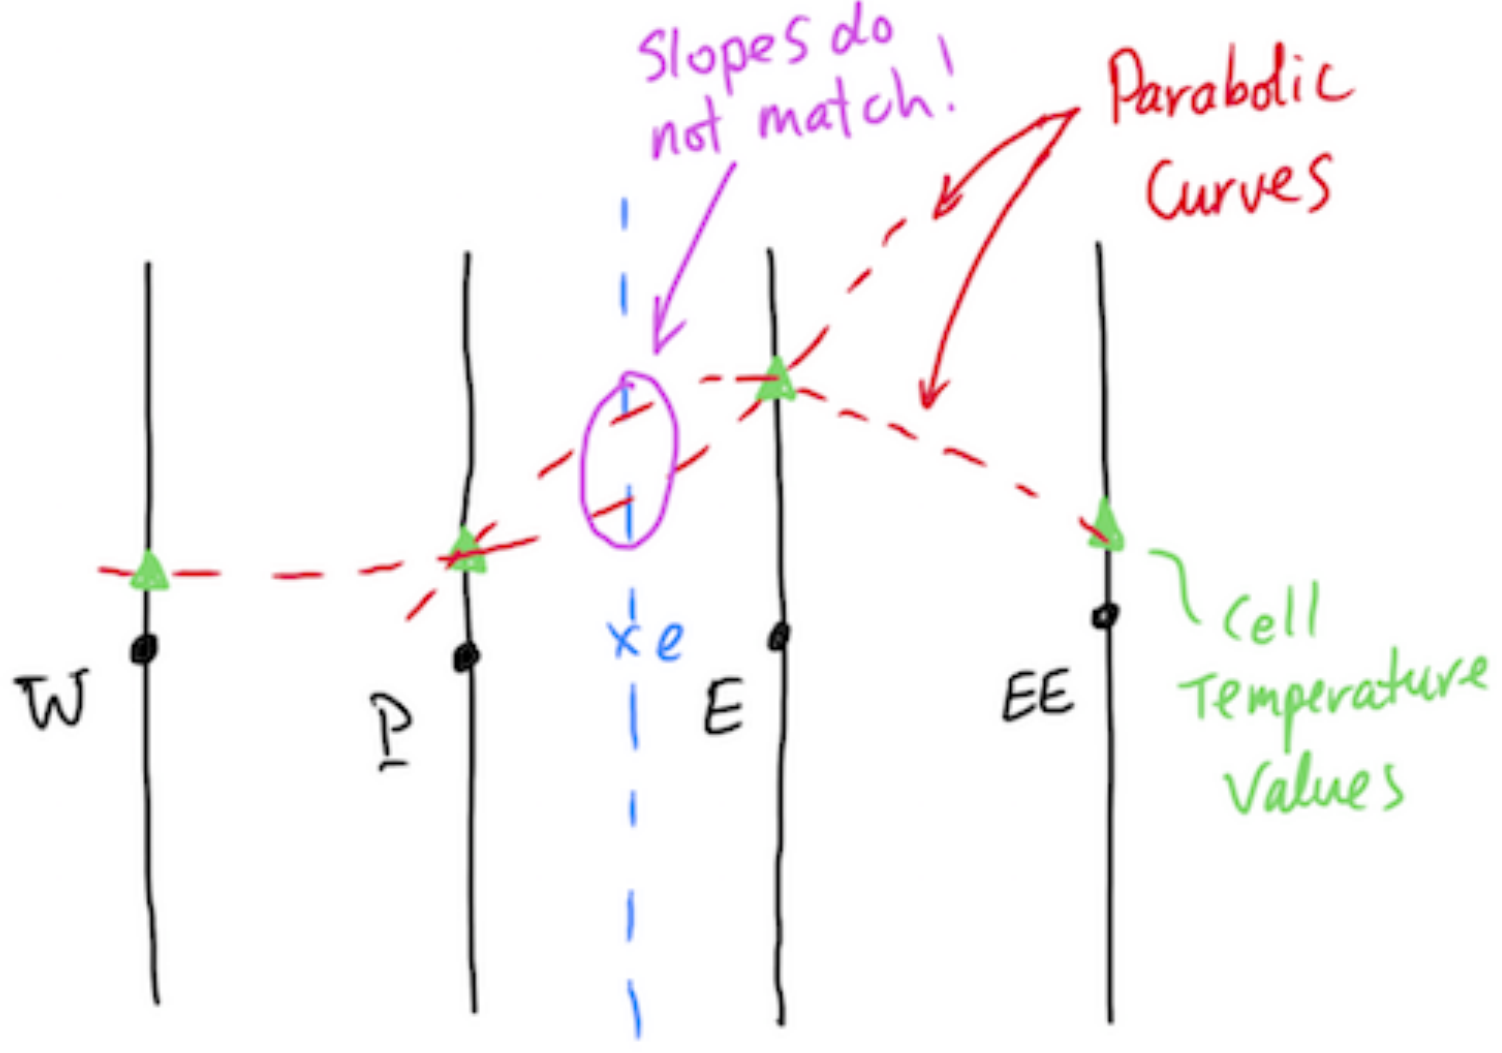 Slopes do
not match!
Parabolic
Curves
xe
W
P
E
EE
Cell
Temperature
Values